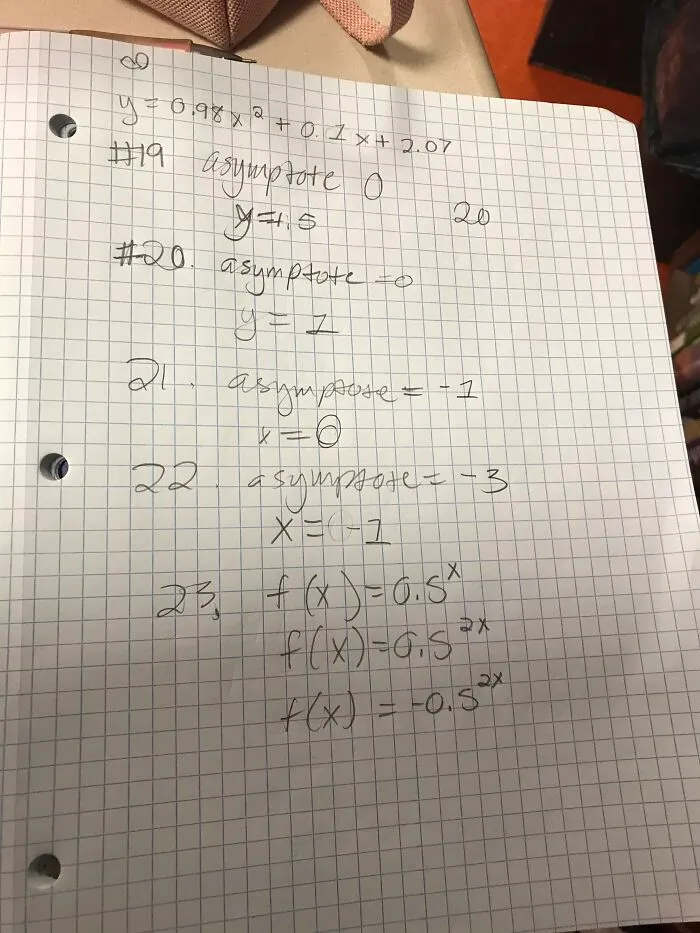 ∞
y = 0.98x² + 0.1x + 2.07
#19 asymptote 0
y=1.5 20
#20. asymptote =0
y = 1
21. asymptote = -1
x = 0
22. asymptote = -3
x = -1
23. f(x) = 0.5^x
f(x) = 0.5^2x
f(x) = -0.5^2x